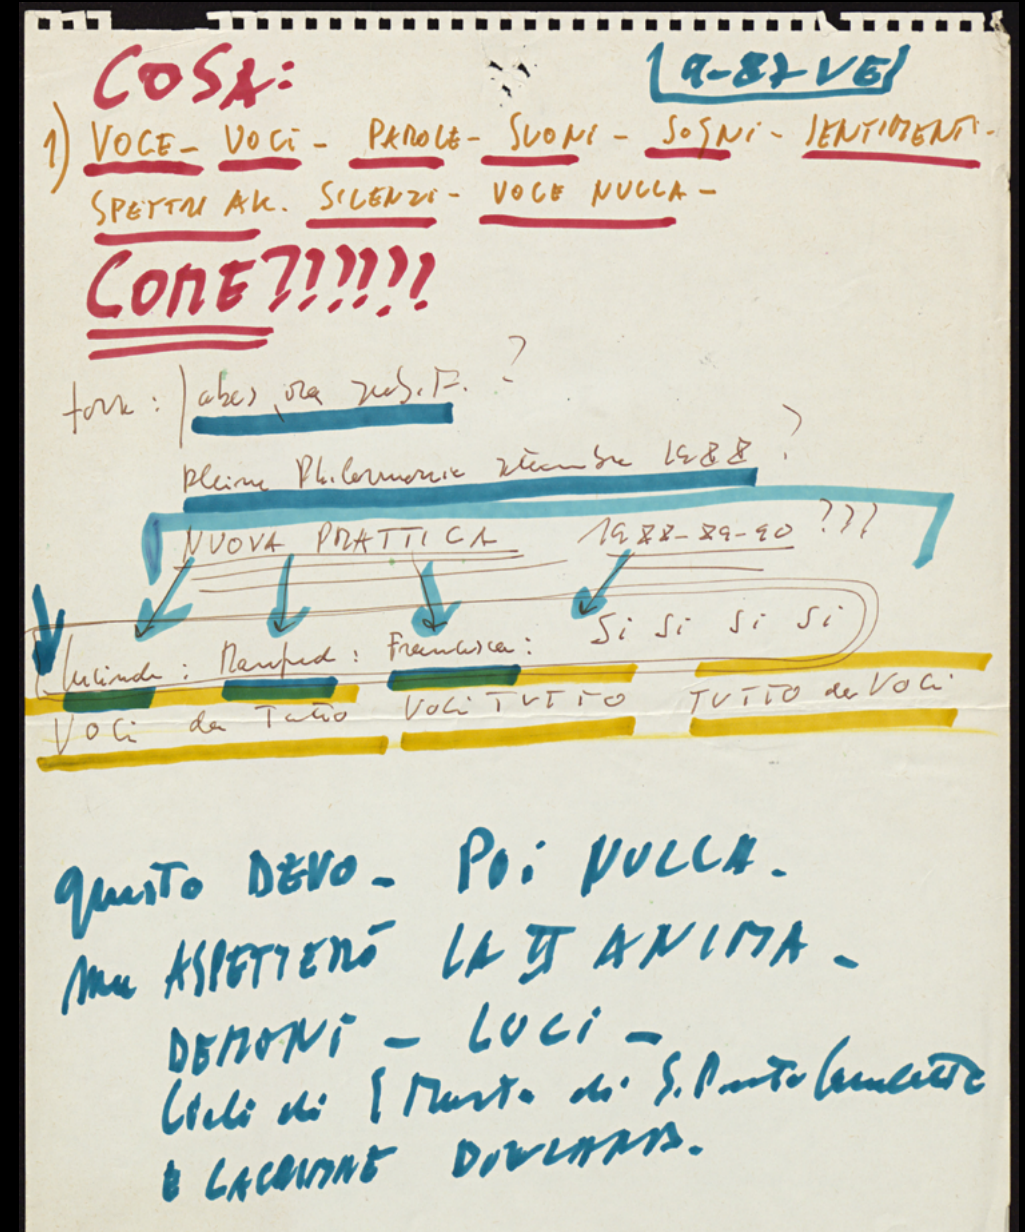 COSA: 9-87 VE
1) VOCE - VOCi - PAROLE - SUONi - SOGNi - SENTIMENTi -
SPETTRI AK. SILENZI - VOCE NULLA -
COME?!!!!!
forse : ?
pleine Philarmonie settembre 1988 ?
NUOVA PRATTICA 1988-89-90 ???
Lucinda : Manfred : Francesca : Si Si Si Si
VOCi da Tutto VOCi TUTTO TUTTO da VOCi
questo DEVO - POi NULLA -
ma ASPETTERÒ LA II ANIMA -
DEMONi - LUCi -
Cieli di S Marta di S.
E LACRIME